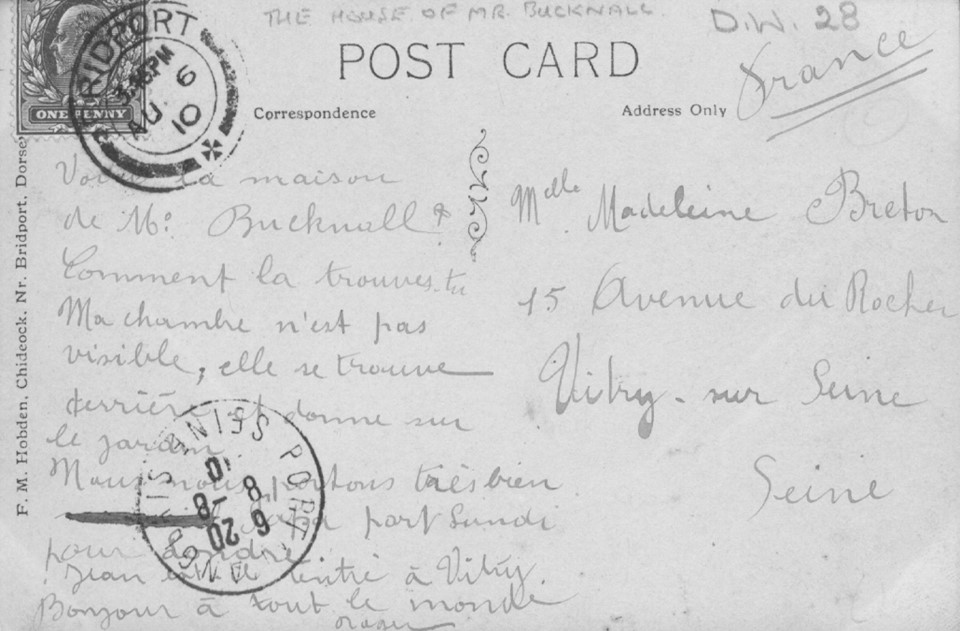 THE HOUSE OF MR. BUCKNALL.
D.W. 28
POST CARD
France
BRIDPORT
3.45PM
AU 6
10
ONE PENNY
Correspondence
Address Only
Voici la maison
de Mr. Bucknall
Comment la trouves-tu
Ma chambre n'est pas
visible, elle se trouve
derrière et donne sur
le jardin.
Nous nous portons très bien
Papa part Lundi
pour Londres
Jean est-il rentré à Vitry.
Bonjour à tout le monde
Melle Madeleine Breton
15 Avenue du Rocher
Vitry-sur Seine
Seine
F. M. Hobden, Chideock, Nr. Bridport, Dorset
SEINE PORT
6 20
8 -8
10